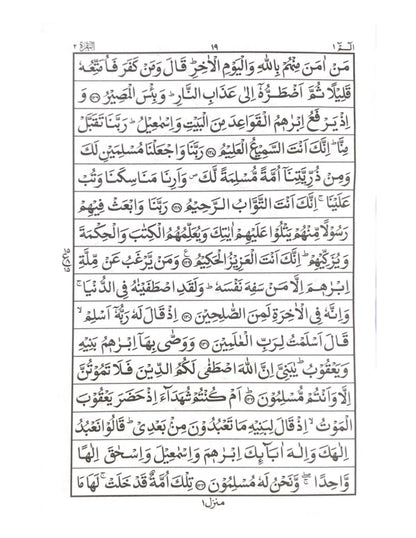 الٓمّٓ ١ ١٩ البقرة ٢
مَنْ اٰمَنَ مِنْهُمْ بِاللّٰهِ وَالْيَوْمِ الْاٰخِرِ ؕ قَالَ وَمَنْ كَفَرَ فَاُمَتِّعُهٗ
قَلِيْلًا ثُمَّ اَضْطَرُّهٗۤ اِلٰى عَذَابِ النَّارِ ؕ وَبِئْسَ الْمَصِيْرُ ﴿۱۲۶﴾ وَ
اِذْ يَرْفَعُ اِبْرٰهٖمُ الْقَوَاعِدَ مِنَ الْبَيْتِ وَاِسْمٰعِيْلُ ؕ رَبَّنَا تَقَبَّلْ
مِنَّا ؕ اِنَّكَ اَنْتَ السَّمِيْعُ الْعَلِيْمُ ﴿۱۲۷﴾ رَبَّنَا وَاجْعَلْنَا مُسْلِمَيْنِ لَكَ
وَمِنْ ذُرِّيَّتِنَاۤ اُمَّةً مُّسْلِمَةً لَّكَ ۪ وَاَرِنَا مَنَاسِكَنَا وَتُبْ
عَلَيْنَا ۚ اِنَّكَ اَنْتَ التَّوَّابُ الرَّحِيْمُ ﴿۱۲۸﴾ رَبَّنَا وَابْعَثْ فِيْهِمْ
رَسُوْلًا مِّنْهُمْ يَتْلُوْا عَلَيْهِمْ اٰيٰتِكَ وَيُعَلِّمُهُمُ الْكِتٰبَ وَالْحِكْمَةَ
وَيُزَكِّيْهِمْ ؕ اِنَّكَ اَنْتَ الْعَزِيْزُ الْحَكِيْمُ ﴿۱۲۹﴾ وَمَنْ يَّرْغَبُ عَنْ مِّلَّةِ
اِبْرٰهٖمَ اِلَّا مَنْ سَفِهَ نَفْسَهٗ ؕ وَلَقَدِ اصْطَفَيْنٰهُ فِى الدُّنْيَا ۚ
وَاِنَّهٗ فِى الْاٰخِرَةِ لَمِنَ الصّٰلِحِيْنَ ﴿۱۳۰﴾ اِذْ قَالَ لَهٗ رَبُّهٗۤ اَسْلِمْ ۙ
قَالَ اَسْلَمْتُ لِرَبِّ الْعٰلَمِيْنَ ﴿۱۳۱﴾ وَوَصّٰى بِهَاۤ اِبْرٰهٖمُ بَنِيْهِ
وَيَعْقُوْبُ ؕ يٰبَنِىَّ اِنَّ اللّٰهَ اصْطَفٰى لَكُمُ الدِّيْنَ فَلَا تَمُوْتُنَّ
اِلَّا وَاَنْتُمْ مُّسْلِمُوْنَ ﴿۱۳۲﴾ اَمْ كُنْتُمْ شُهَدَآءَ اِذْ حَضَرَ يَعْقُوْبَ
الْمَوْتُ ۙ اِذْ قَالَ لِبَنِيْهِ مَا تَعْبُدُوْنَ مِنْۢ بَعْدِىْ ؕ قَالُوْا نَعْبُدُ
اِلٰهَكَ وَاِلٰهَ اٰبَآئِكَ اِبْرٰهٖمَ وَاِسْمٰعِيْلَ وَاِسْحٰقَ اِلٰهًا
وَّاحِدًا ۖۚ وَّنَحْنُ لَهٗ مُسْلِمُوْنَ ﴿۱۳۳﴾ تِلْكَ اُمَّةٌ قَدْ خَلَتْ ۚ لَهَا مَا
منزل ١